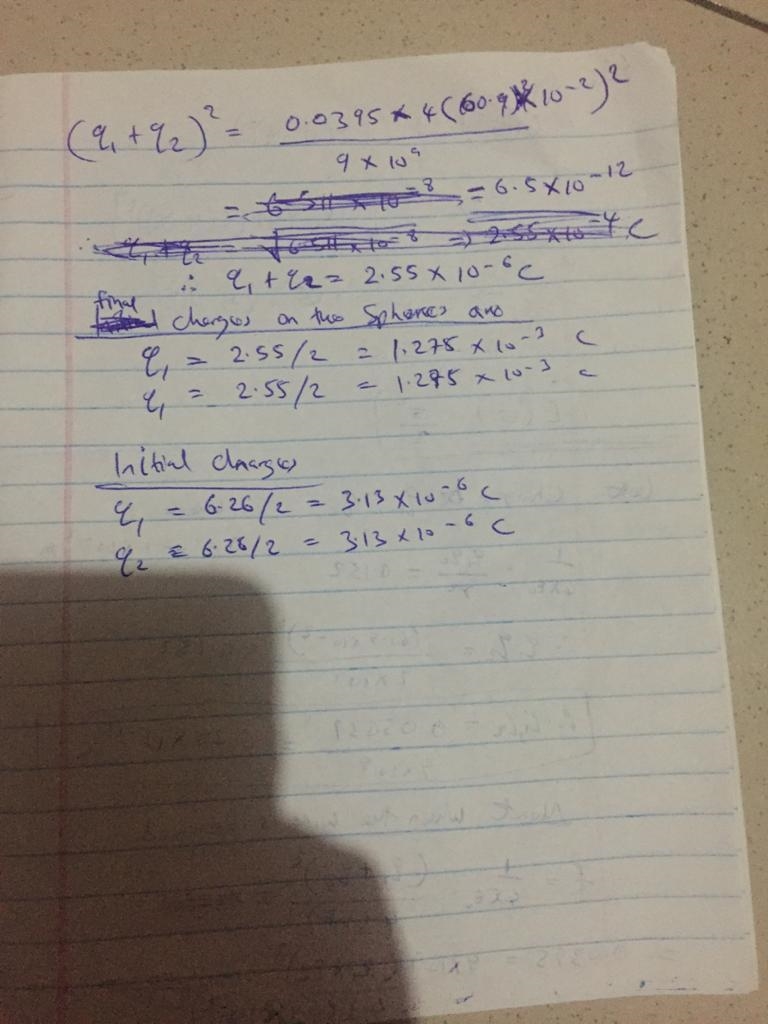 (q₁ + q₂)² = 0.0395 × 4(60.9 × 10⁻²)² / 9 × 10⁹
= 6.511 × 10⁻⁸ = 6.5 × 10⁻¹²
∴ q₁ + q₂ = √6.511 × 10⁻⁸ ⇒ 2.55 × 10⁻⁴ C
∴ q₁ + q₂ = 2.55 × 10⁻⁶ C
final charges on two Spheres are
q₁ = 2.55/2 = 1.275 × 10⁻³ C
q₁ = 2.55/2 = 1.275 × 10⁻³ C
Initial charges
q₁ = 6.26/2 = 3.13 × 10⁻⁶ C
q₂ = 6.26/2 = 3.13 × 10⁻⁶ C